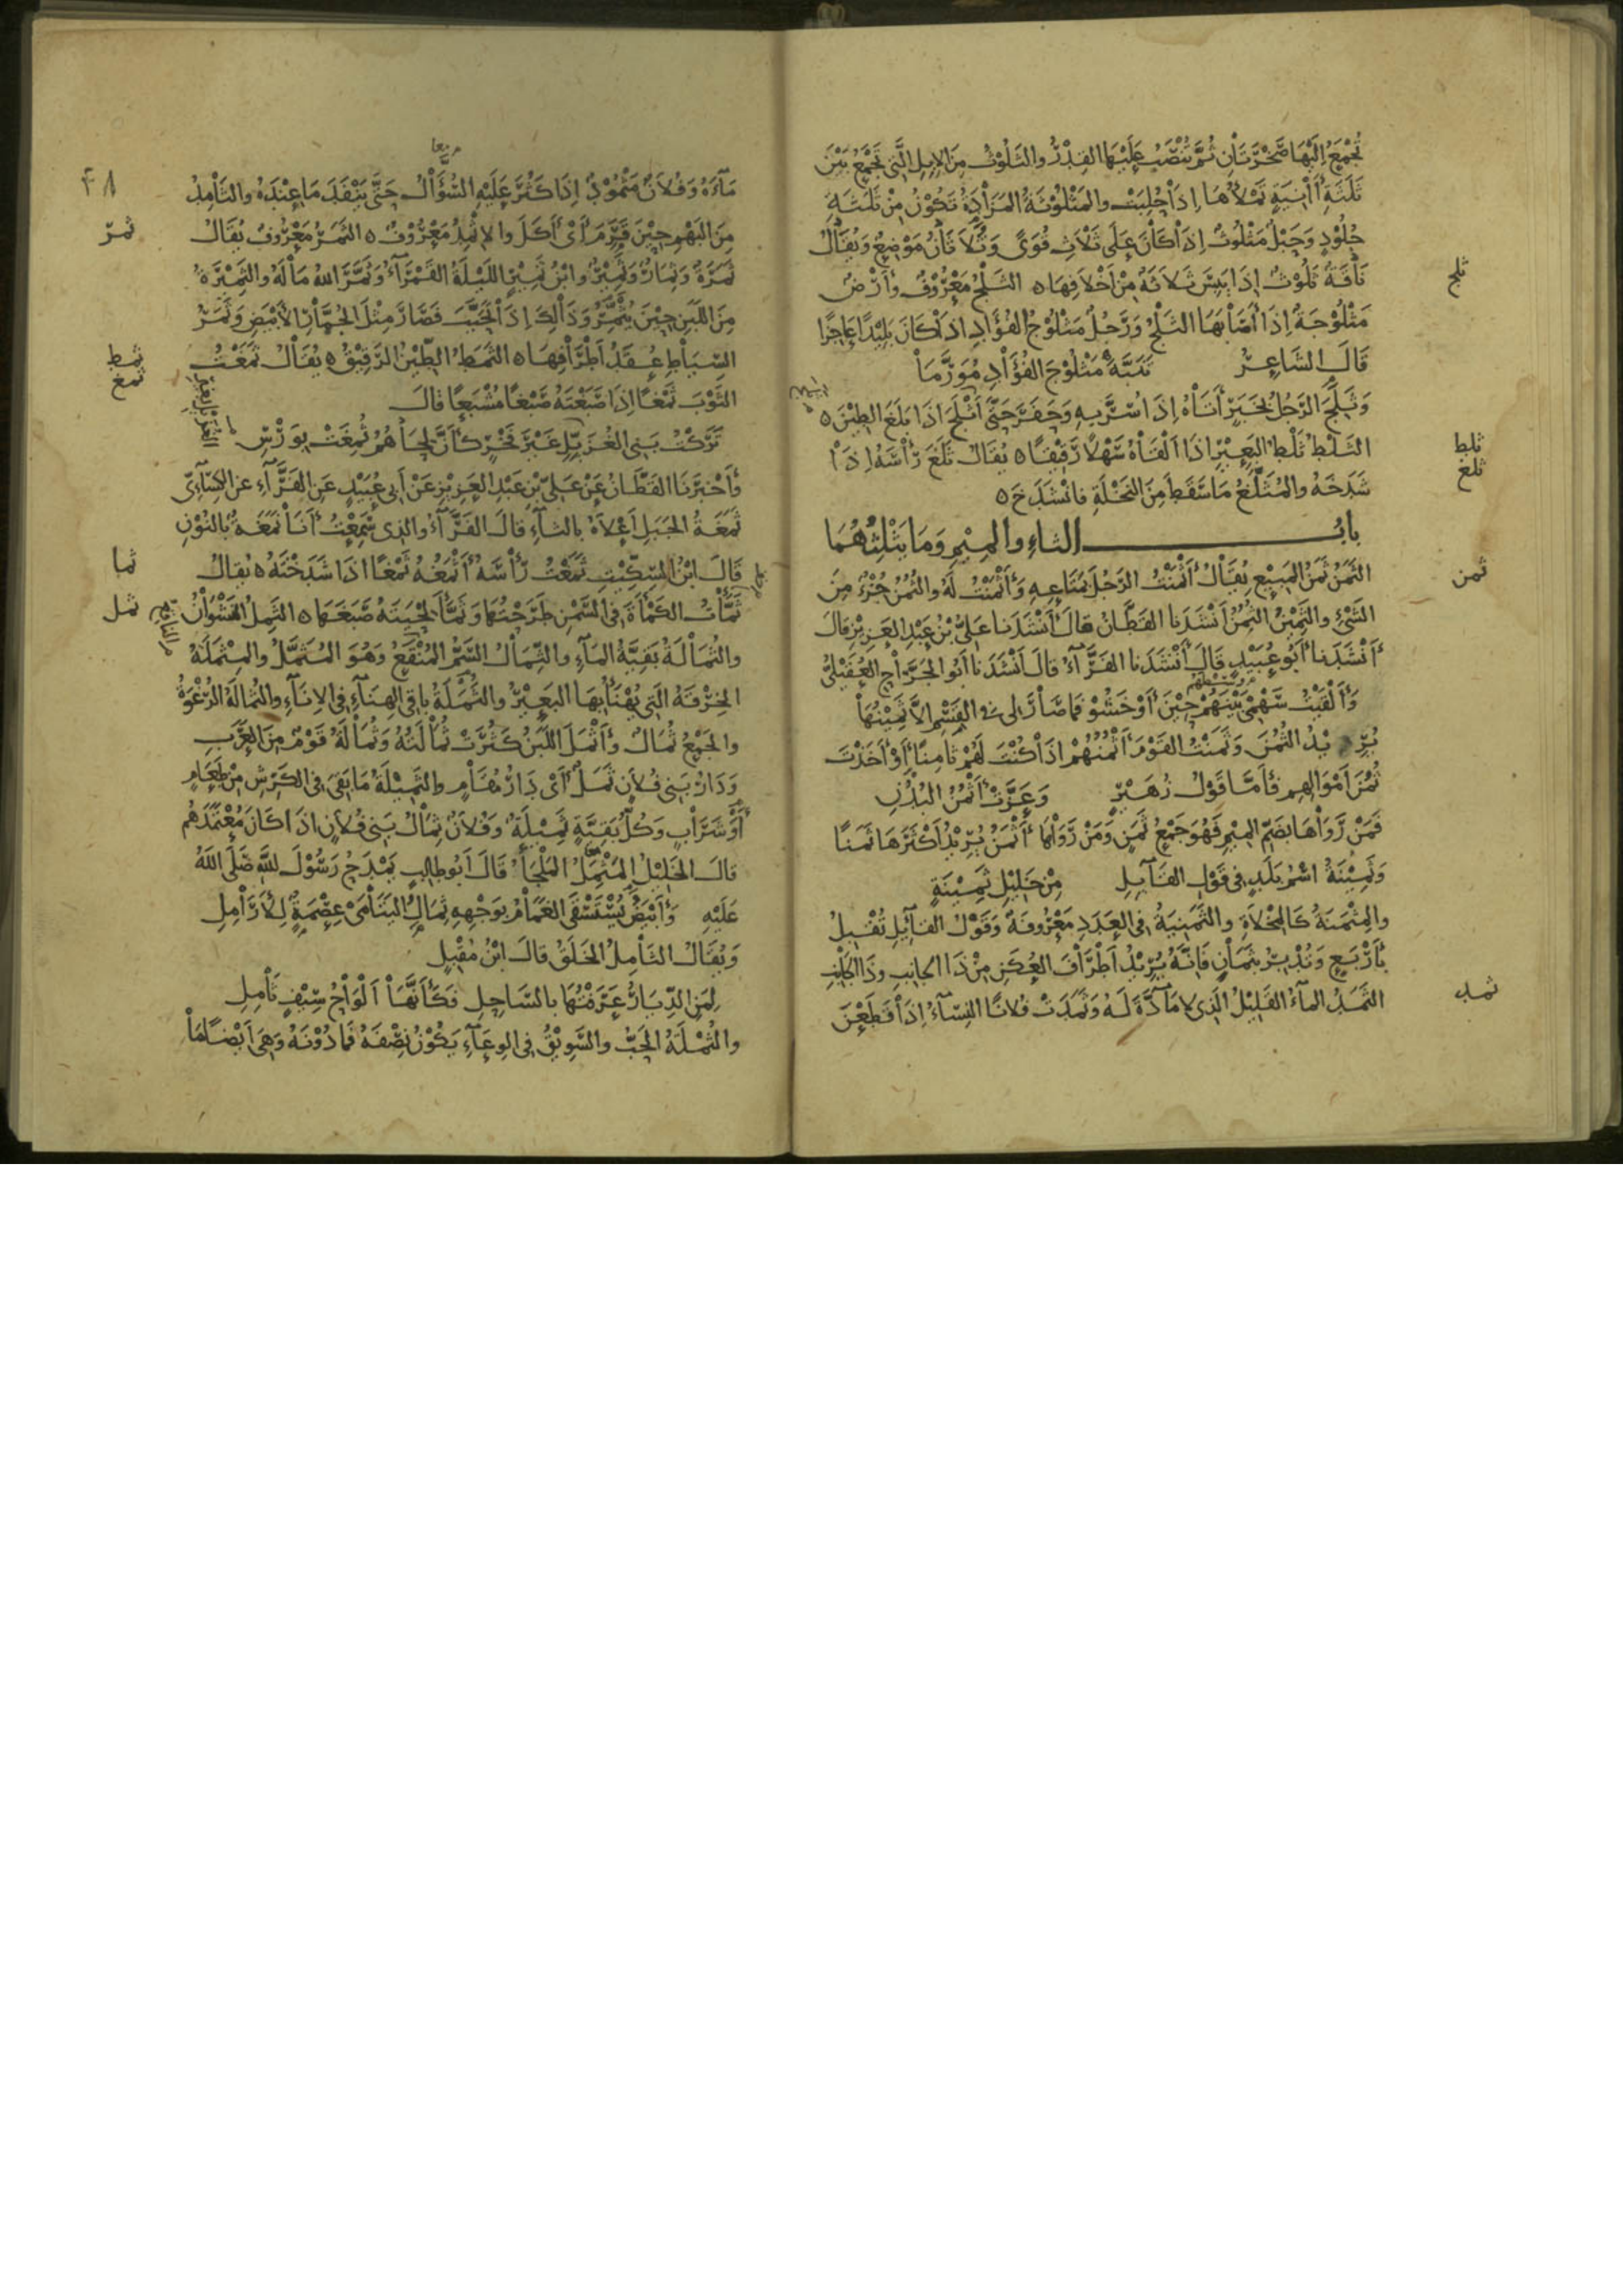 تُجْمَعُ إِلَيْهَا صَخْرَتَانِ ثُمَّ تُنْصَبُ عَلَيْهَا القِدْرُ والثَّلُوْثُ مِنَ الإبِلِ الَّتِي تَجْمَعُ بَيْنَ
ثَلَثَةِ أٰنِيَةٍ تَمْلَأُهَا إِذَا حُلِبَتْ والمَثْلُوْثَةُ المَزَادَةُ تَكُوْنُ مِنْ ثَلَثَةِ
جُلُوْدٍ وَحَبْلٌ مَثْلُوثٌ إِذَا كَانَ عَلَى ثَلَاثِ قُوًى وَثُلَاثَانُ مَوْضِعٌ وَيُقَالُ
نَاقَةٌ ثَلُوْثٌ إِذَا يَبِسَ ثَلَاثَةٌ مِنْ أَخْلَافِهَا ه الثَّلْجُ مَعْرُوْفٌ وَأَرْضٌ
ثلج
مَثْلُوْجَةٌ إِذَا أَصَابَهَا الثَّلْجُ وَرَجُلٌ مَثْلُوْجُ الفُؤَادِ إِذَا كَانَ بَلِيْدًا عَاجِزًا
قَالَ الشَّاعِرُ تَنَبَّهَ مَثْلُوْجَ الفُؤَادِ مُوَرَّمَا
وَثَلِجَ الرَّجُلُ بِخَبَرٍ أَتَاهُ إِذَا سُرَّ بِهِ وَحَفَرَ حَتَّى أَثْلَجَ اذَا بَلَغَ الطِيْنَ ه
الثَّلْطُ ثَلْطُ البَعِيْرِ اذَا أَلْقَاهُ سَهْلًا رَقِيْقًا ه يُقَالُ ثَلَغَ رَأْسَهُ إِذَا
ثلط
ثلغ
شَدَخَهُ والمُثَلَّغُ مَا سَقَطَ مِنَ النَخْلَةِ فانْشَدَخَ ه
بابُ الثاءِ والمِيْمِ وَمَا يَثْلِثُهُمَا
الثَّمَنُ ثَمَنُ المَبِيْعِ يُقَالُ أَثْمَنْتُ الرَجُلَ مَتَاعِهِ وَأَثْمَنْتُ لَهُ والثُمُنُ جُزْءٌ مِنَ
ثمن
الشَّئِ والثَمِيْنُ الثُمُنُ أَنْشَدَنا القَطَّانُ قَالَ أَنْشَدَنا عَلِيُّ بْنُ عَبْدِ العَزِيْزِ قالَ
أَنْشَدَنا أَبُو عُبَيْدٍ قَالَ أَنْشَدَنا الفَرَّآءُ قالَ أَنْشَدَنا أَبُو الجَرَّاحِ العُقَيْلِيُّ
وَأَلْقَيْتُ سَهْمِي بَيْنَهُمْ حِيْنَ أَوْخَشُوْ فَمَا صَارَ لِي فى القَسْمِ إِلَّا ثَمِيْنُهَا
يُرِيْدُ الثُمُنَ وَثَمَنْتُ القَوْمَ أَثْمُنُهُمْ اذَا كُنْتَ لَهُمْ ثَامِنًا أَوْ أَخَذْتَ
ثُمُنَ أَمْوَالِهِم فَأَمَّا قَوْلُ زُهَيْرٍ وَعَزَّتْ أَثْمُنُ البُدُنِ
فَمَنْ رَوَاهَا بِضَمِّ المِيْمِ فَهُوَ جَمْعُ ثَمَنٍ وَمَنْ رَوَاهَا أَثْمَنُ يُرِيْدُ أَكْثَرَهَا ثَمَنًا
وَثَمِيْنَةُ اسْمُ بَلَدٍ فى قَوْلِ القَآئِلِ مِنْ خَلِيْلِ ثَمِيْنَةٍ
والمِثْمَنَةُ كَالمِخْلَاةِ والثَمَنِيَةُ فى العَدَدِ مَعْرُوفَةٌ وَقَوْلُ القآئِلِ تُقْبِلُ
بِأَرْبَعٍ وَتُدْبِرُ بِثَمَانٍ فَإِنَّهُ يُرِيْدُ أَطْرَافَ العُكَنِ مِنْ ذَا الجانِبِ وذَا الجَانِبِ
الثَّمَدُ المآءُ القَلِيْلُ الَّذِى لَا مَآدَّةَ لَهُ وَثَمَدَتْ فُلَانًا النِسَآءُ إِذَا قَطَعْنَ
ثمد
مَآءَهُ وَفُلَانٌ مَثْمُوْدٌ إِذَا كَثُرَ عَلَيْهِ السُّؤَالُ حَتَّى يَنْفَدَ مَا عِنْدَهُ والثَامِدُ
٢٨
مِنَ البَهْمِ حِيْنَ قَرَمَ أَىْ أَكَلَ والإِثْمِدُ مَعْرُوْفٌ ه الثَمَرُ مَعْرُوفٌ يُقَالُ
ثمر
ثَمَرَةٌ وَثِمَارٌ وَثَمِيْرٌ وابْنُ ثَمِيْرٍ اللَيْلَةُ القَمْرَآءُ وَثَمَّرَ اللهُ مَالَهُ والثَمِيْرَةُ
مِنَ اللَبَنِ حِيْنَ يُثَمِّرُ وَذَالِكَ إِذَا تَحَبَّبَ فَصَارَ مِثْلَ الجُمَّارِ الأَبْيَضِ وَثَمَرُ
السِّيَاطِ عُقَدُ أَطْرَافِهَا ه الثَمْطُ الطِّيْنُ الرَقِيْقُ ه يُقَالُ ثَمَغْتُ
ثمط
ثمغ
الثَّوْبَ ثَمْغًا إِذَا صَبَغْتَهُ صَبْغًا مُشْبَعًا قالَ
تَرَكْتُ بَنِى الغُزَيِّلِ غَيْرَ فَخْرٍ كَأَنَّ لِحَاهُمُ ثُمِغَتْ بِوَرْسِ
وَأَخْبَرَنَا القَطَّانُ عَنْ عَلِيِّ بْنِ عَبْدِ العَزِيْزِ عَنْ أَبِي عُبَيْدٍ عَنِ الفَرَّآءِ عن الكِسَآئِىِّ
ثَمَغَةُ الجَبَلِ أَعْلَاهُ بالثآءِ قالَ الفَرَّآءُ والذى سَمِعْتُ أَنَا نَمَغَةٌ بالنُوْنِ
قَالَ ابْنُ السِّكِّيْتِ ثَمَغْتُ رَأْسَهُ أَثْمَغُهُ ثَمْغًا اذَا شَدَخْتَهُ ه يُقالُ
ثما
ثَمَأْتُ الكَمْأَةَ فى السَّمْنِ طَرَحْتُهَا وَثَمَأَ لِحْيَتَهُ صَبَغَهَا ه الثَمِلُ النَّشْوَانُ
ثمل
والثُمَالَةُ بَقِيَّةُ المآءِ والثُمَالُ السَّمُّ المُنْقَعُ وَهُوَ المُثَمَّلُ والمِثْمَلَةُ
الخِرْقَةُ الَّتِى يُهْنَأُ بِهَا البَعِيْرُ والثُمْلَةُ باقِى الهِنَآءِ فى الإِنآءِ والثُمالَةُ الرُغْوَةُ
والجَمْعُ ثُمَالٌ وَأَثْمَلَ اللَبَنُ كَثُرَتْ ثُمَالَتُهُ وَثُمَالَةُ قَوْمٌ مِنَ العَرَبِ
وَدَارُ بَنِى فُلَانٍ ثَمَلٌ أَىْ دَارُ مُقَامٍ والثَمِيْلَةُ مَا بَقِىَ فى الكَرِشِ مِنْ طَعَامٍ
أَوْ شَرَابٍ وَكُلُّ بَقِيَّةٍ ثَمِيْلَةٌ وَفُلَانٌ ثِمَالُ بَنِى فُلَانٍ اذَا كَانَ مُعْتَمَدَهُم
قالَ الخَلِيْلُ المَثْمِلُ المَلْجَأُ قَالَ أَبُو طالِبٍ يَمْدَحُ رَسُوْلَ اللهِ صَلَّى اللهُ
عَلَيْهِ وَأَبْيَضُ يُسْتَسْقَى الغَمَامُ بِوَجْهِهِ ثِمَالُ اليَتَامَى عِصْمَةٌ لِلأَرَامِلِ
وَيُقَالُ الثَامِلُ الخَلَقُ قالَ ابْنُ مُقْبِلٍ
لِمَنِ الدِّيَارُ عَرَفْتُهَا بالسَّاحِلِ فَكَأَنَّهَا أَلْوَاحُ سَيْفٍ ثَامِلِ
والثُمْلَةُ الحَبُّ والسَّوِيْقُ فى الوِعَآءِ يَكُوْنُ نِصْفَهُ فَمَا دُوْنَهُ وَهِىَ أَيْضًا مَا